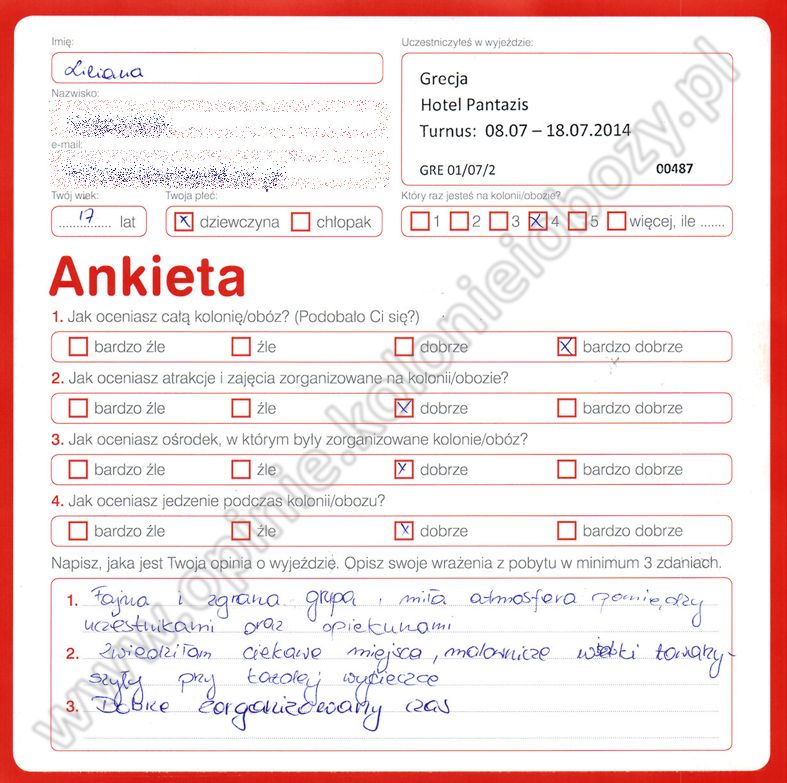 Imię:
Liliana
Nazwisko:
e-mail:
Twój wiek:
17 lat
Twoja płeć:
dziewczyna chłopak
Uczestniczyłeś w wyjeździe:
Grecja
Hotel Pantazis
Turnus: 08.07 – 18.07.2014
GRE 01/07/2 00487
Który raz jesteś na kolonii/obozie?
1 2 3 4 5 więcej, ile .......
Ankieta
1. Jak oceniasz całą kolonię/obóz? (Podobało Ci się?)
bardzo źle źle dobrze bardzo dobrze
2. Jak oceniasz atrakcje i zajęcia zorganizowane na kolonii/obozie?
bardzo źle źle dobrze bardzo dobrze
3. Jak oceniasz ośrodek, w którym były zorganizowane kolonie/obóz?
bardzo źle źle dobrze bardzo dobrze
4. Jak oceniasz jedzenie podczas kolonii/obozu?
bardzo źle źle dobrze bardzo dobrze
Napisz, jaka jest Twoja opinia o wyjeździe. Opisz swoje wrażenia z pobytu w minimum 3 zdaniach.
1. Fajna i zgrana grupa, miła atmosfera pomiędzy
uczestnikami oraz opiekunami
2. Zwiedziłam ciekawe miejsca, malownicze widoki towarzy-
szyły przy każdej wycieczce
3. Dobrze zorganizowany czas
www.opinie.kolonieiobozy.pl